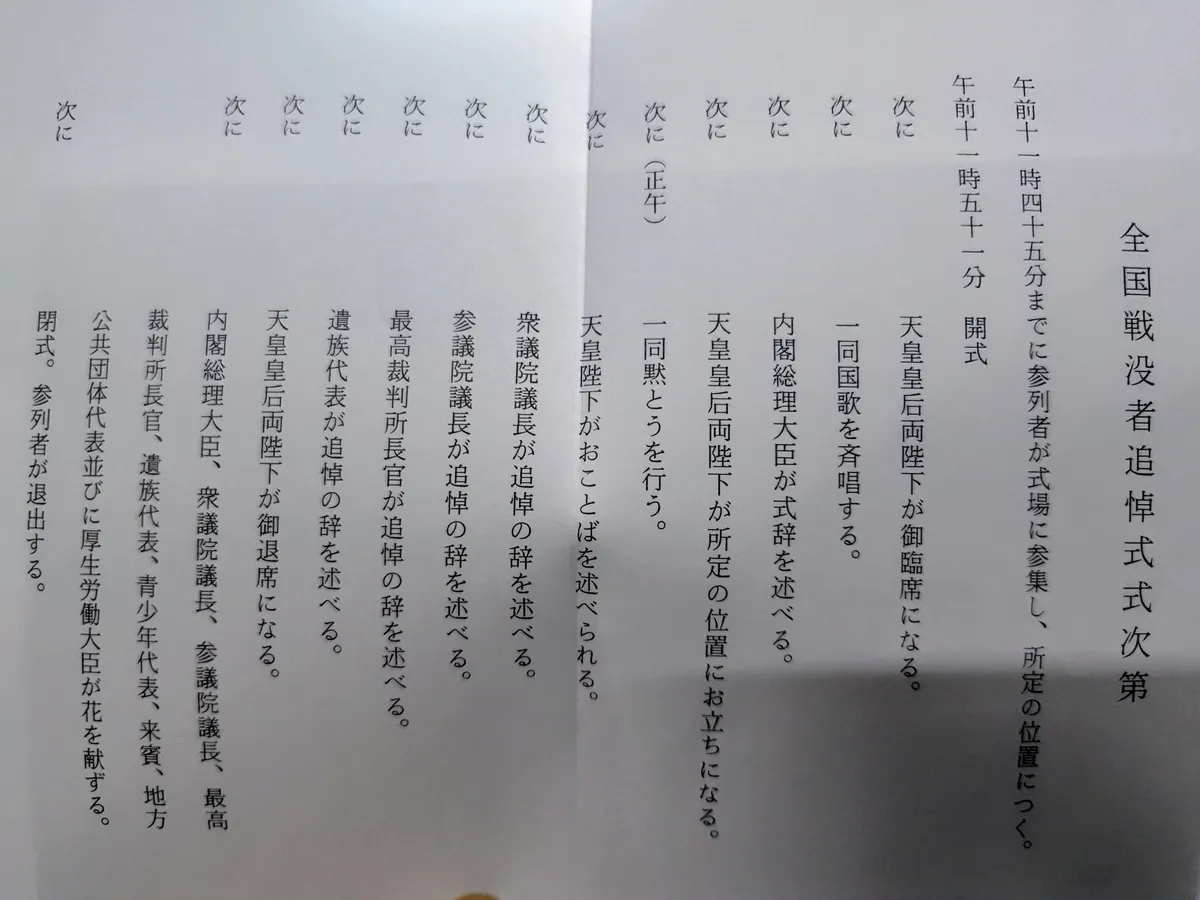 全国戦没者追悼式式次第
午前十一時四十五分までに参列者が式場に参集し、所定の位置につく。
午前十一時五十一分　開式
次に　天皇皇后両陛下が御臨席になる。
次に　一同国歌を斉唱する。
次に　内閣総理大臣が式辞を述べる。
次に　天皇皇后両陛下が所定の位置にお立ちになる。
次に（正午）　一同黙とうを行う。
次に　天皇陛下がおことばを述べられる。
次に　衆議院議長が追悼の辞を述べる。
次に　参議院議長が追悼の辞を述べる。
次に　最高裁判所長官が追悼の辞を述べる。
次に　遺族代表が追悼の辞を述べる。
次に　天皇皇后両陛下が御退席になる。
次に　内閣総理大臣、衆議院議長、参議院議長、最高
裁判所長官、遺族代表、青少年代表、来賓、地方
公共団体代表並びに厚生労働大臣が花を献ずる。
次に　閉式。参列者が退出する。